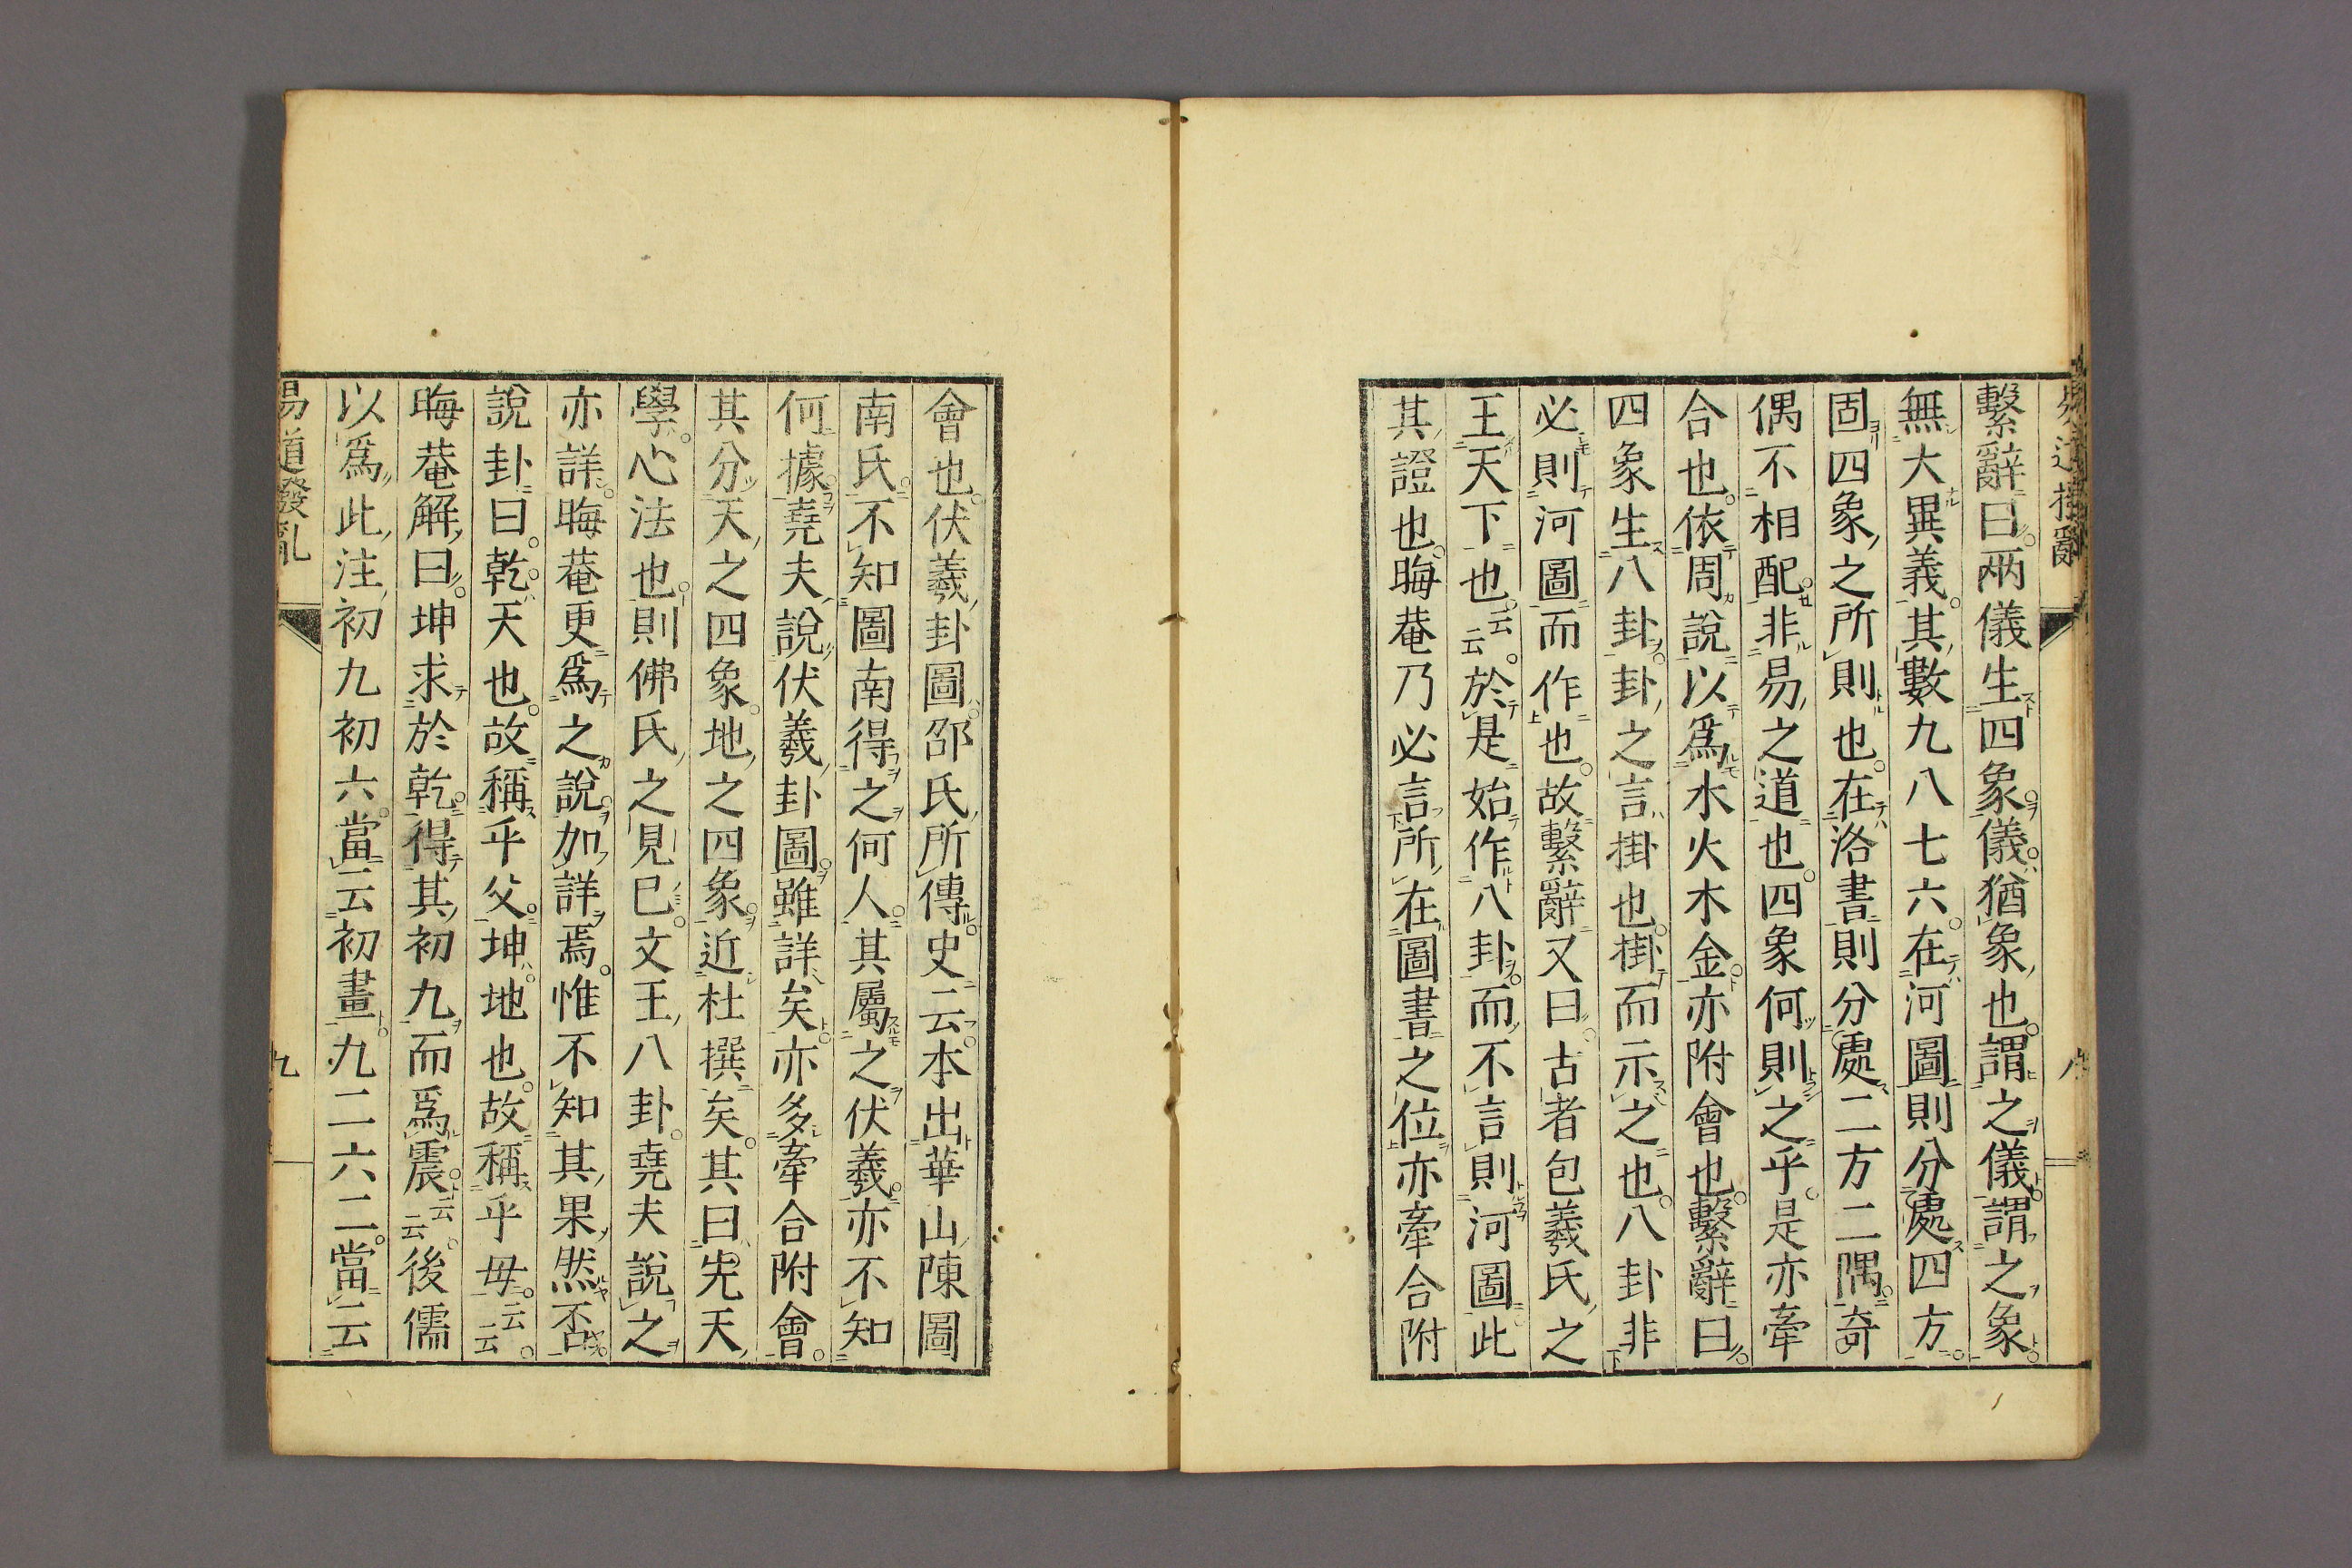 繫辭曰兩儀生四象儀猶象也謂之儀謂之象
無大異義其數九八七六在河圖則分處四方
固四象之所則也在洛書則分處二方二隅奇
偶不相配非易之道也四象何則之乎是亦牽
合也依周說以爲水火木金亦附會也繫辭曰
四象生八卦卦之言掛也掛而示之也八卦非
必則河圖而作也故繫辭又曰古者包羲氏之
王天下也云云於是始作八卦而不言則河圖此
其證也晦菴乃必言所在圖書之位亦牽合附
會也伏羲卦圖邵氏所傳史云本出華山陳圖
南氏不知圖南得之何人其屬之伏羲亦不知
何據堯夫說伏羲卦圖雖詳矣亦多牽合附會
其分天之四象地之四象近杜撰矣其曰先天
學心法也則佛氏之見已文王八卦堯夫說之
亦詳晦菴更爲之說加詳焉惟不知其果然否
說卦曰乾天也故稱乎父坤地也故稱乎母云云
晦菴解曰坤求於乾得其初九而爲震云云後儒
以爲此注初九初六當云初畫九二六二當云
易道撥亂
九